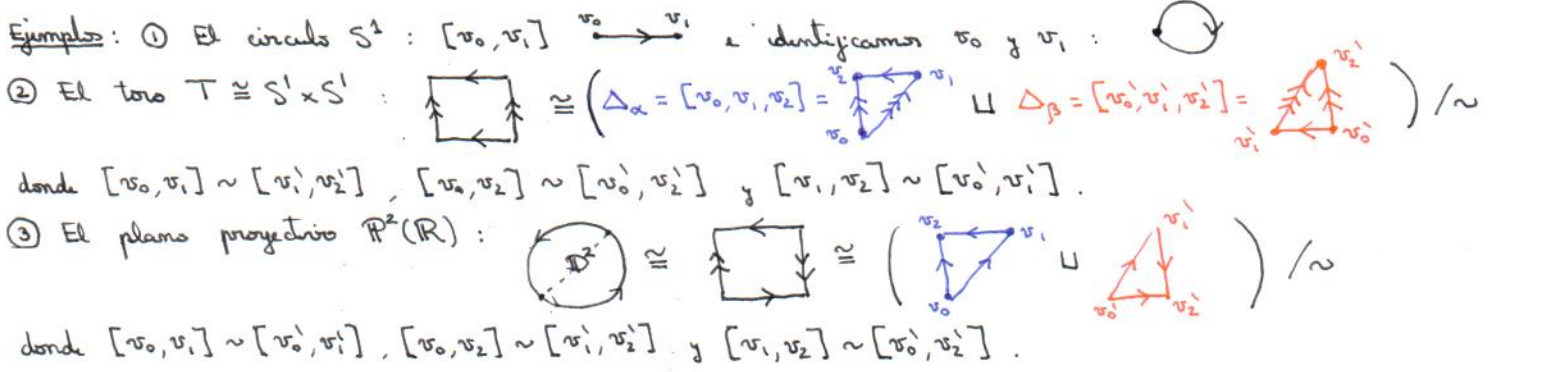 Ejemplos: ① El circulo S¹ : [v₀, v₁] v₀ v₁ e identificamos v₀ y v₁ :
② El toro T ≅ S¹ × S¹ : ≅ ( Δ_α = [v₀, v₁, v₂] = v₂ v₁ v₀ ⊔ Δ_β = [v₀', v₁', v₂'] = v₂' v₁' v₀' ) / ~
donde [v₀, v₁] ~ [v₁', v₂'] , [v₀, v₂] ~ [v₀', v₂'] y [v₁, v₂] ~ [v₀', v₁'] .
③ El plano proyectivo ℙ²(ℝ) : 𝔻² ≅ ≅ ( v₂ v₁ v₀ ⊔ v₁' v₀' v₂' ) / ~
donde [v₀, v₁] ~ [v₀', v₁'] , [v₀, v₂] ~ [v₁', v₂'] y [v₁, v₂] ~ [v₀', v₂'] .